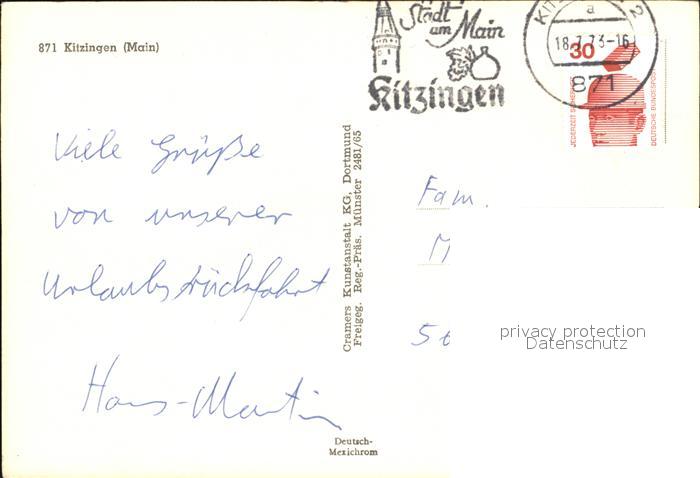 871 Kitzingen (Main)
Stadt
am Main
Kitzingen
18.7.73-16
871
30
JEDERZEIT SICHERHEIT
DEUTSCHE BUNDESPOST
Viele Grüße
von unserer
Urlaubsrückfahrt
Hans-Martin
Cramers Kunstanstalt KG, Dortmund
Freigeg. Reg.-Präs. Münster 2481/65
Deutsch-
Mexichrom
Fam.
M
St
privacy protection
Datenschutz